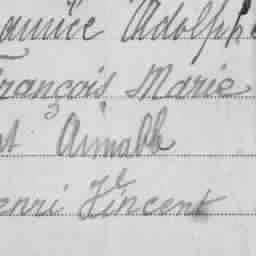 Adolphe
François Marie
Aimable
Henri Vincent